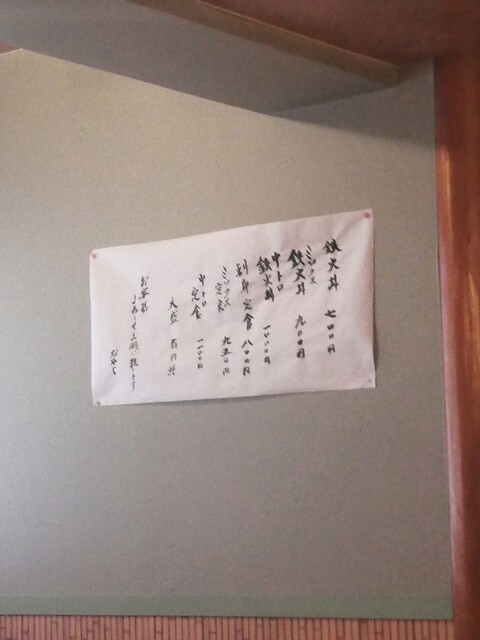 鉄火丼 七〇〇円
ミックス鉄火丼 九〇〇円
中トロ鉄火丼 一〇〇〇円
刺身定食 八〇〇円
ミックス定食 九五〇円
中トロ定食 一一〇〇円
大盛 百円増
お客様
よろしくお願い致します